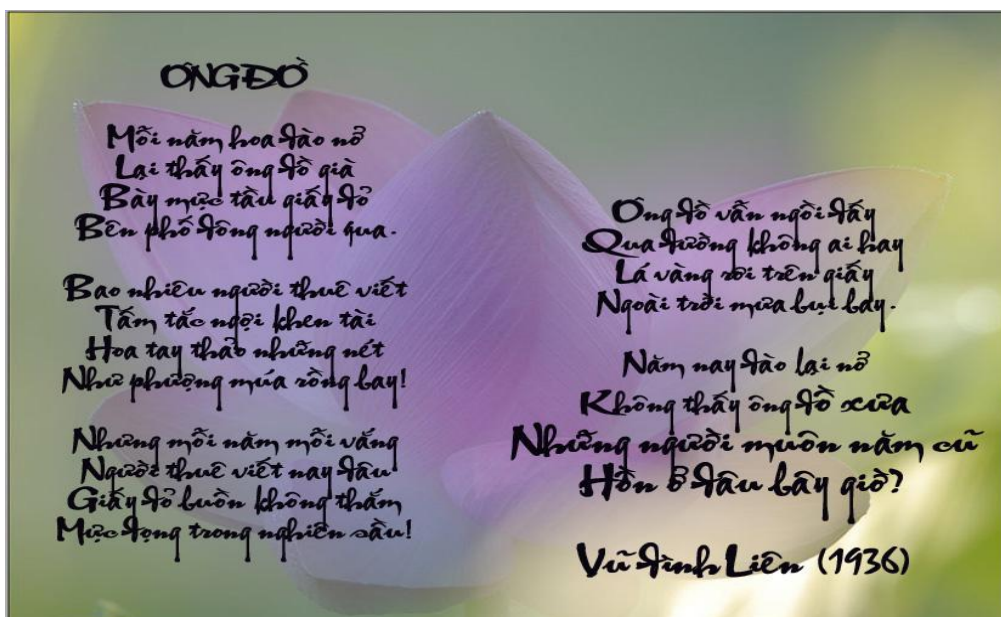 ÔNG ĐỒ
Mỗi năm hoa đào nở
Lại thấy ông đồ già
Bày mực tầu giấy đỏ
Bên phố đông người qua.
Bao nhiêu người thuê viết
Tấm tắc ngợi khen tài
Hoa tay thảo những nét
Như phượng múa rồng bay!
Nhưng mỗi năm mỗi vắng
Người thuê viết nay đâu
Giấy đỏ buồn không thắm
Mực đọng trong nghiên sầu!
Ông đồ vẫn ngồi đấy
Qua đường không ai hay
Lá vàng rơi trên giấy
Ngoài trời mưa bụi bay.
Năm nay đào lại nở
Không thấy ông đồ xưa
Những người muôn năm cũ
Hồn ở đâu bây giờ?
Vũ Đình Liên (1936)